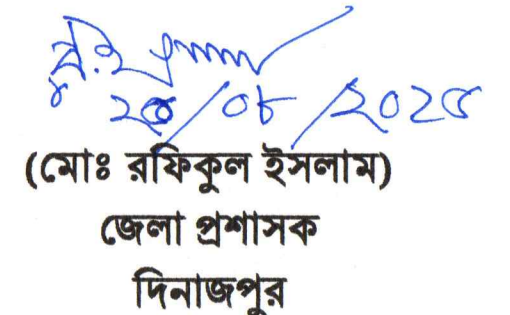 ২০/০৮/২০২৫
(মোঃ রফিকুল ইসলাম)
জেলা প্রশাসক
দিনাজপুর